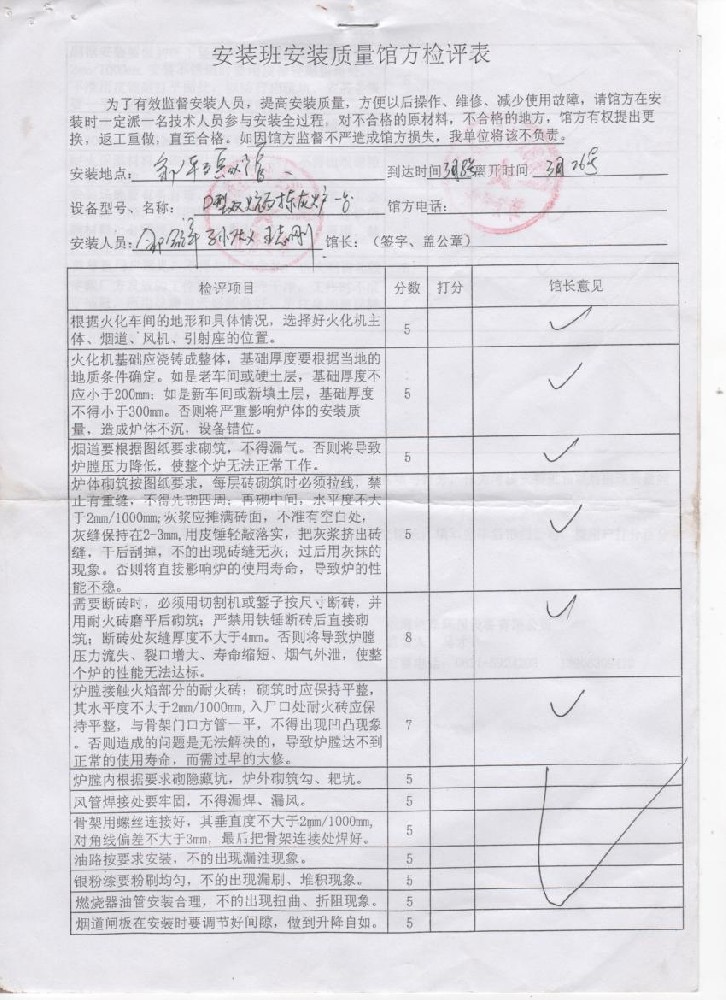 安装班安装质量馆方检评表
为了有效监督安装人员，提高安装质量，方便以后操作、维修、减少使用故障，请馆方在安
装时一定派一名技术人员参与安装全过程，对不合格的原材料，不合格的地方，馆方有权提出更
换，返工重做，直至合格。如因馆方监督不严造成馆方损失，我单位将该不负责。
安装地点： 到达时间 3月8号 离开时间 3月26号
设备型号、名称： 一台 馆方电话：
安装人员： 馆长：（签字、盖公章）
检评项目 分数 打分 馆长意见
根据火化车间的地形和具体情况，选择好火化机主
体、烟道、风机、引射座的位置。 5
火化机基础应浇铸成整体，基础厚度要根据当地的
地质条件确定。如是老车间或硬土层，基础厚度不
应小于200mm；如是新车间或新填土层，基础厚度 5
不得小于300mm。否则将严重影响炉体的安装质
量，造成炉体不沉，设备错位。
烟道要根据图纸要求砌筑，不得漏气。否则将导致 5
炉膛压力降低，使整个炉无法正常工作。
炉体砌筑按图纸要求，每层砖砌筑时必须拉线，禁
止有重缝，不得先砌四周，再砌中间，水平度不大
于2mm/1000mm；灰浆应摊满砖面，不准有空口处，
灰缝保持在2-3mm，用皮锤轻敲落实，把灰浆挤出砖 5
缝，干后刮掉，不的出现砖缝无灰；过后用灰抹的
现象。否则将直接影响炉的使用寿命，导致炉的性
能不稳。
需要断砖时，必须用切割机或錾子按尺寸断砖，并
用耐火砖磨平后砌筑；严禁用铁锤断砖后直接砌
筑；断砖处灰缝厚度不大于4mm。否则将导致炉膛 8
压力流失、裂口增大、寿命缩短、烟气外泄，使整
个炉的性能无法达标。
炉膛接触火焰部分的耐火砖；砌筑时应保持平整，
其水平度不大于2mm/1000mm，入尸口处耐火砖应保
持平整，与骨架门口方管一平，不得出现凹凸现象 7
。否则造成的问题是无法解决的，导致炉膛达不到
正常的使用寿命，而需过早的大修。
炉膛内根据要求砌隐藏坑，炉外砌筑勾、耙坑。 5
风管焊接处要牢固，不得漏焊、漏风。 5
骨架用螺丝连接好，其垂直度不大于2mm/1000mm，
对角线偏差不大于3mm，最后把骨架连接处焊好。 5
油路按要求安装，不的出现漏油现象。 5
银粉漆要粉刷均匀，不的出现漏刷、堆积现象。 5
燃烧器油管安装合理，不的出现扭曲、折阻现象。 5
烟道闸板在安装时要调节好间隙，做到升降自如。 5